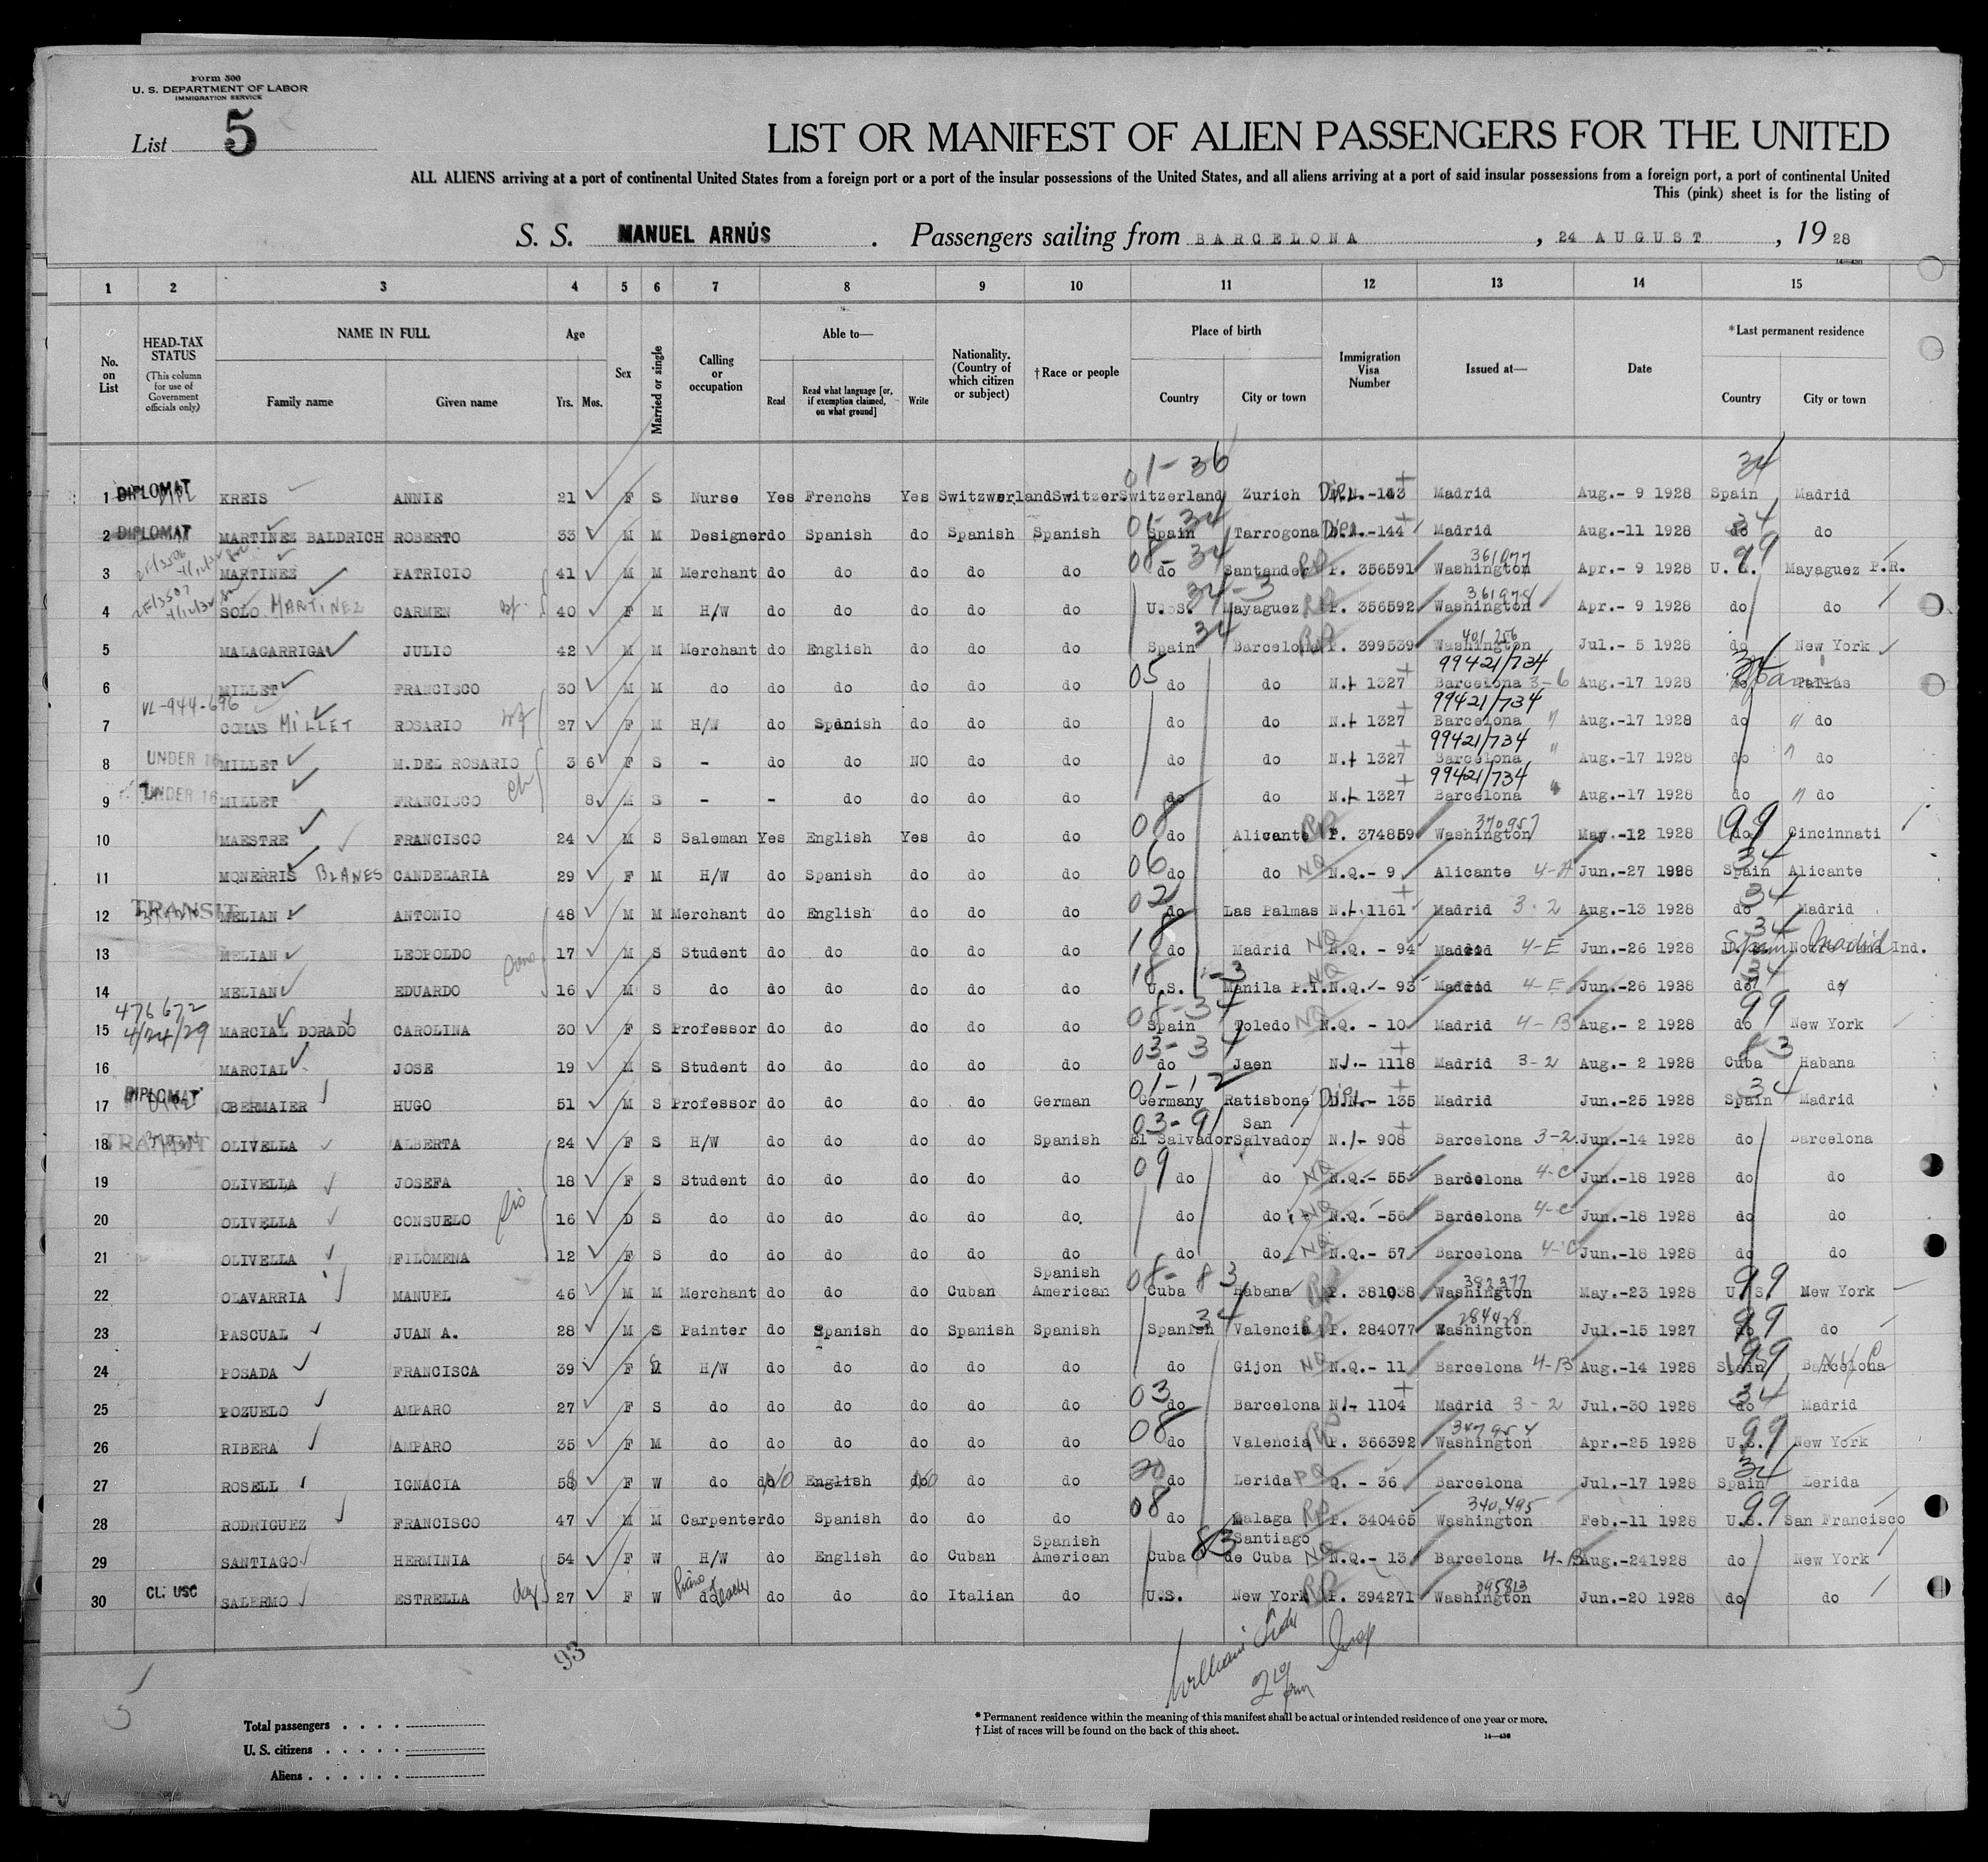 Form 500
U. S. DEPARTMENT OF LABOR
IMMIGRATION SERVICE
List 5
LIST OR MANIFEST OF ALIEN PASSENGERS FOR THE UNITED
ALL ALIENS arriving at a port of continental United States from a foreign port or a port of the insular possessions of the United States, and all aliens arriving at a port of said insular possessions from a foreign port, a port of continental United
This (pink) sheet is for the listing of
S. S. MANUEL ARNÚS . Passengers sailing from BARCELONA , 24 AUGUST , 19 28
14-430
1 2 3 4 5 6 7 8 9 10 11 12 13 14 15
No. on List
HEAD-TAX STATUS
(This column for use of Government officials only)
NAME IN FULL
Family name Given name
Age
Yrs. Mos.
Sex
Married or single
Calling or occupation
Able to—
Read Read what language [or, if exemption claimed, on what ground] Write
Nationality. (Country of which citizen or subject)
†Race or people
Place of birth
Country City or town
Immigration Visa Number
Issued at—
Date
*Last permanent residence
Country City or town
01-36 34
1 DIPLOMAT KREIS ANNIE 21 F S Nurse Yes Frenchs Yes Switzwerland Switzer Switzerland Zurich Dip. -143 Madrid Aug.- 9 1928 Spain Madrid
01-34 34
2 DIPLOMAT MARTINEZ BALDRICH ROBERTO 33 M M Designer do Spanish do Spanish Spanish Spain Tarrogona Dip. -144 Madrid Aug.-11 1928 do do
08-34 361077 99
3 MARTINEZ PATRICIO 41 M M Merchant do do do do do do Santander RP P. 356591 Washington Apr.- 9 1928 U. S. Mayaguez P.R.
34-3 361078
4 SOLO MARTINEZ CARMEN wf. 40 F M H/W do do do do do U. S. Mayaguez RP P. 356592 Washington Apr.- 9 1928 do do
34 401256
5 MALAGARRIGA JULIO 42 M M Merchant do English do do do Spain Barcelona RP P. 399539 Washington Jul.- 5 1928 do New York
05 99421/734 34
6 MILLET FRANCISCO 30 M M do do do do do do do do N.I- 1327 Barcelona 3-6 Aug.-17 1928 do
VL-944-696 99421/734
7 COMAS MILLET ROSARIO wf 27 F M H/W do Spanish do do do do do N.I- 1327 Barcelona " Aug.-17 1928 do " do
99421/734
8 UNDER 16 MILLET M.DEL ROSARIO 3 6 F S - do do NO do do do do N.I- 1327 Barcelona " Aug.-17 1928 do " do
99421/734
9 UNDER 16 MILLET FRANCISCO ch 8 M S - - do do do do do do N.I- 1327 Barcelona " Aug.-17 1928 do " do
08 370957 99
10 MAESTRE FRANCISCO 24 M S Saleman Yes English Yes do do do Alicante RP P. 374859 Washington May.-12 1928 do Cincinnati
06 34
11 MONERRIS BLANES CANDELARIA 29 F M H/W do Spanish do do do do do NQ N.Q.- 9 Alicante 4-A Jun.-27 1928 Spain Alicante
02 34
12 TRANSIT MELIAN ANTONIO 48 M M Merchant do English do do do do Las Palmas N.I. 1161 Madrid 3-2 Aug.-13 1928 do Madrid
18 34
13 MELIAN LEOPOLDO 17 M S Student do do do do do do Madrid NQ N.Q. - 94 Madrid 4-E Jun.-26 1928 U.S. Spain Notre Dame Ind. Madrid
18 -3 34
14 MELIAN EDUARDO sons 16 M S do do do do do do U.S. Manila P.I. NQ N.Q. - 93 Madrid 4-E Jun.-26 1928 do do
476672 08-34 99
15 4/24/29 MARCIAL DORADO CAROLINA 30 F S Professor do do do do do Spain Toledo NQ N.Q. - 10 Madrid 4-B Aug.- 2 1928 do New York
03-34 83
16 MARCIAL JOSE 19 M S Student do do do do do do Jaen N.I.- 1118 Madrid 3-2 Aug.- 2 1928 Cuba Habana
01-12 34
17 DIPLOMAT OBERMAIER HUGO 51 M S Professor do do do do German Germany Ratisbone Dip. - 135 Madrid Jun.-25 1928 Spain Madrid
03-91 San
18 TRANSIT OLIVELLA ALBERTA 24 F S H/W do do do do Spanish El Salvador Salvador N.I- 908 Barcelona 3-2 Jun.-14 1928 do Barcelona
09
19 OLIVELLA JOSEFA 18 F S Student do do do do do do do NQ N.Q.- 55 Barcelona 4-C Jun.-18 1928 do do
20 OLIVELLA CONSUELO sis 16 D S do do do do do do do do NQ N.Q. -56 Barcelona 4-C Jun.-18 1928 do do
21 OLIVELLA FILOMENA 12 F S do do do do do do do do NQ N.Q.- 57 Barcelona 4-C Jun.-18 1928 do do
Spanish 08-83 382377 99
22 OLAVARRIA MANUEL 46 M M Merchant do do do Cuban American Cuba Habana RP P. 381038 Washington May.-23 1928 U.S. New York
34 284428 99
23 PASCUAL JUAN A. 28 M S Painter do Spanish do Spanish Spanish Spanish Valencia RP P. 284077 Washington Jul.-15 1927 do do
99
24 POSADA FRANCISCA 39 F M H/W do do do do do do Gijon NQ N.Q.- 11 Barcelona 4-B Aug.-14 1928 Spain Barcelona
03 34
25 POZUELO AMPARO 27 F S do do do do do do do Barcelona N.I- 1104 Madrid 3-2 Jul.-30 1928 do Madrid
08 347954 99
26 RIBERA AMPARO 35 F M do do do do do do do Valencia RP P. 366392 Washington Apr.-25 1928 U.S. New York
20 34
27 ROSELL IGNACIA 58 F W do do NO English do NO do do do Lerida PQ Q. - 36 Barcelona Jul.-17 1928 Spain Lerida
08 340,495 99
28 RODRIGUEZ FRANCISCO 47 M M Carpenter do Spanish do do do do Malaga RP P. 340465 Washington Feb.-11 1928 U.S. San Francisco
Spanish 83 Santiago
29 SANTIAGO HERMINIA 54 F W H/W do English do Cuban American Cuba de Cuba NQ N.Q.- 13 Barcelona 4-B Aug.-241928 do New York
Piano Teacher 395813
30 CL: USC SALERMO ESTRELLA day 27 F W do do do do Italian do U.S. New York RP P. 394271 Washington Jun.-20 1928 do do
93
Total passengers
U. S. citizens
Aliens
* Permanent residence within the meaning of this manifest shall be actual or intended residence of one year or more.
† List of races will be found on the back of this sheet.
14-430